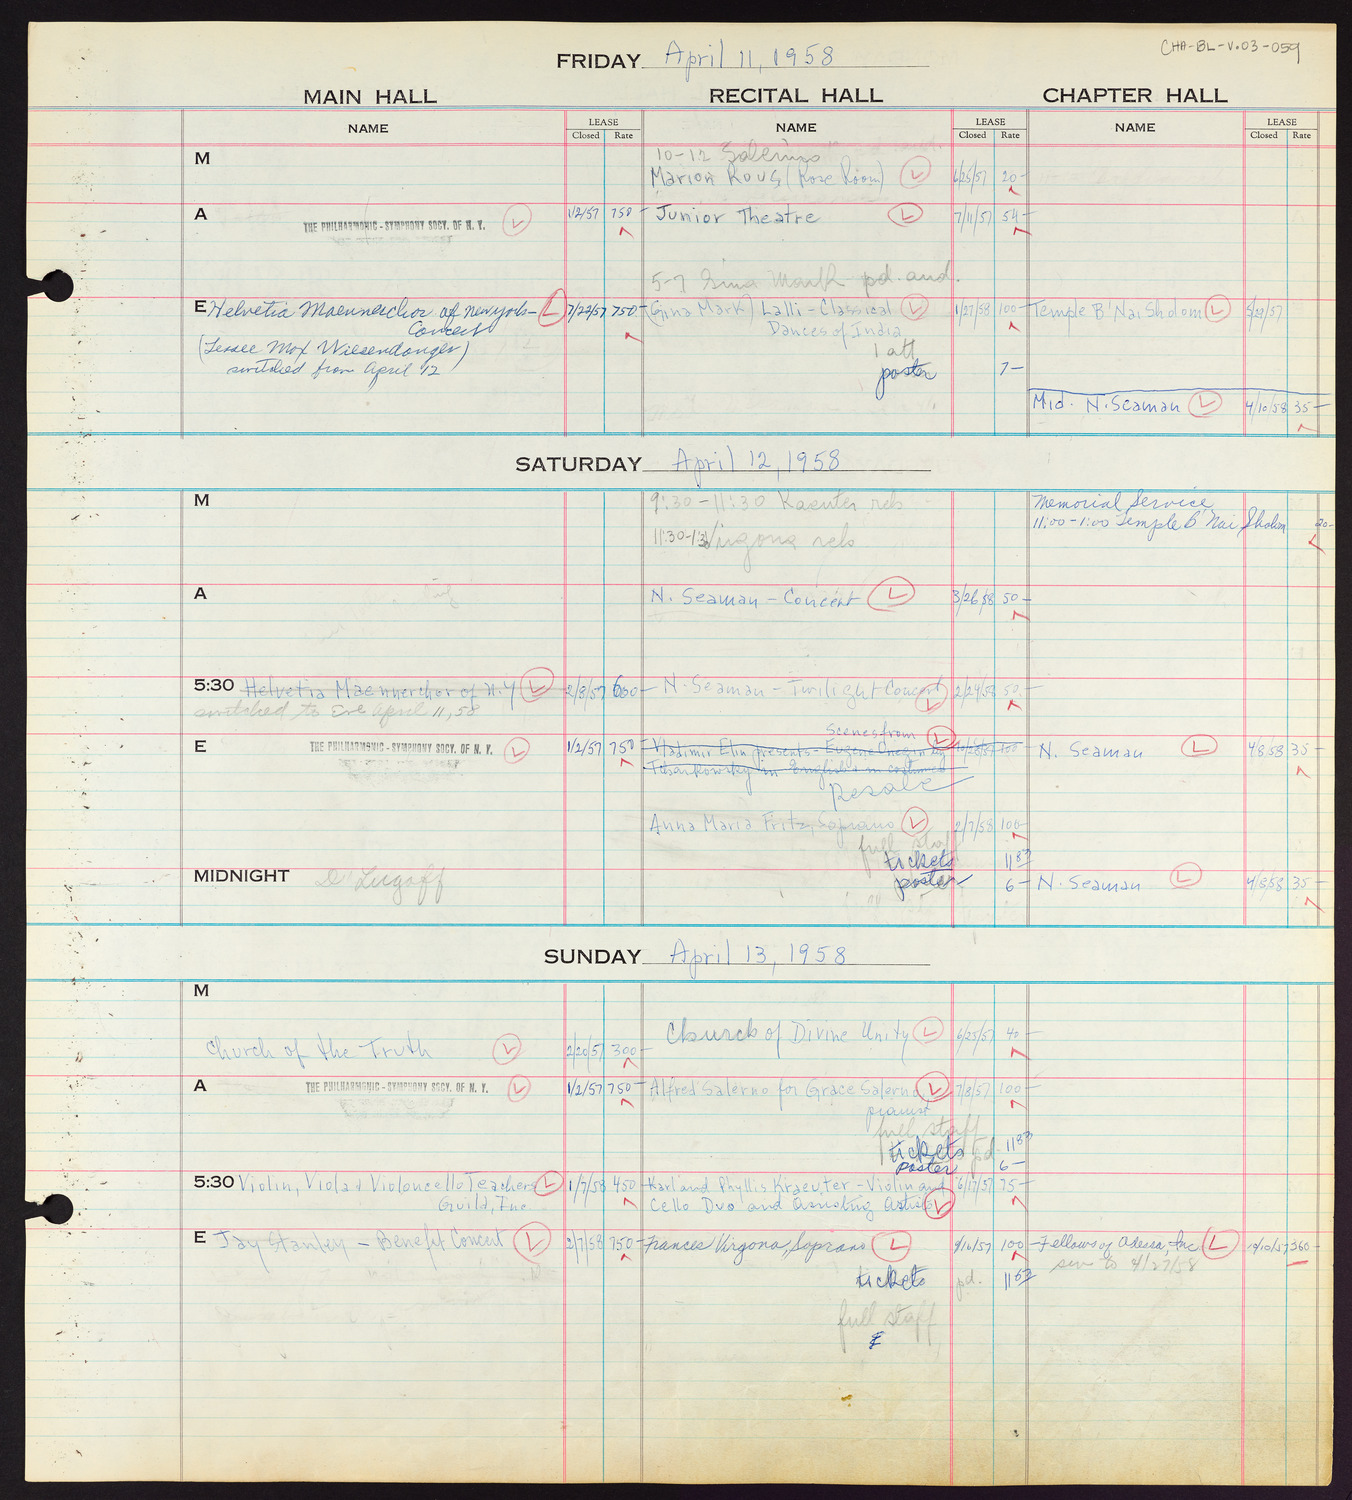 CHA-BL-V.03-059
FRIDAY April 11, 1958
MAIN HALL RECITAL HALL CHAPTER HALL
NAME LEASE Closed Rate NAME LEASE Closed Rate NAME LEASE Closed Rate
M
10-12 Salerno
Marion Rous (Rose Room) L 6/25/57 20-
A THE PHILHARMONIC-SYMPHONY SOCY. OF N. Y. L 1/2/57 750- Junior Theatre L 7/11/57 54-
5-7 Gina Mark pd. and.
E Helvetia Maennerchor of New York- L 7/22/57 750- (Gina Mark) Lalli-Classical L 1/27/58 100- Temple B'Nai Sholom L 5/29/57
Concert Dances of India
(Lessee Max Wiesendanger) 1 att
switched from April 12 poster 7-
Mid. N. Seaman L 4/10/58 35-
SATURDAY April 12, 1958
M 9:30-11:30 Kraeuter reh Memorial Service
11:00-1:00 Temple B'Nai Sholom 20-
11:30-1:30 Virgona reh
A N. Seaman - Concert L 3/26/58 50-
5:30 Helvetia Maennerchor of N.Y L 2/8/57 600- N. Seaman - Twilight Concert L 2/24/58 50-
switched to Eve April 11, 58
Scenes from L
E THE PHILHARMONIC-SYMPHONY SOCY. OF N. Y. L 1/2/57 750- Vladimir Elin presents - Eugene Onegin by 10/28/57 100- N. Seaman L 4/8/58 35-
Tchaikowsky in English & in costumes
Resale
Anna Maria Fritz, Soprano L 2/7/58 100-
full staff
tickets 11 83
MIDNIGHT D'Lugoff poster 6- N. Seaman L 4/8/58 35-
SUNDAY April 13, 1958
M
Church of the Truth L 2/20/57 300- Church of Divine Unity L 6/25/57 40-
A THE PHILHARMONIC-SYMPHONY SOCY. OF N. Y. L 1/2/57 750- Alfred Salerno for Grace Salerno L 7/8/57 100-
pianist
full staff
tickets pd. 11 83
poster 6-
5:30 Violin, Viola & Violoncello Teachers L 1/7/58 450- Karl and Phyllis Kraeuter - Violin and 6/17/57 75-
Guild, Inc. Cello Duo and Assisting Artists L
E Jay Stanley - Benefit Concert L 2/7/58 750- Frances Virgona, Soprano L 9/16/57 100- Fellows of Adessa, Inc. L 10/10/57 360-
4/27/58
tickets pd. 11
full staff